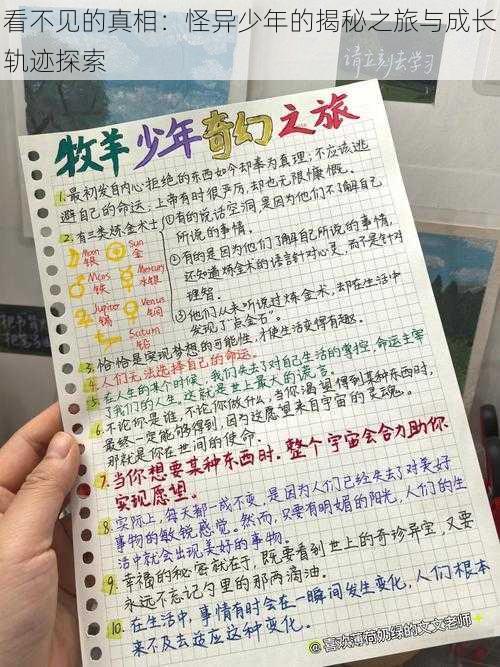 看不见的真相：怪异少年的揭秘之旅与成长
轨迹探索
请立刻去学习
牧羊少年奇幻之旅
1.最初发自内心拒绝的东西如今却奉为真理，不应该逃
避自己的命运，上帝有时很严厉，却也无限慷慨。
2.有三类炼金术士
Moon
银
Sun
金
Mars
铁
Mercury
水银
Jupiter
锡
Venus
铜
Saturn
铅
①有的说话空洞，是因为他们不了解自己
所说的事情。
②有的是因为他们了解自己所说的事情，
还知道炼金术的语言针对心灵，而不是针对
理智。
③他们从未听说过炼金术，却在生活中
发现了“点金石”。
3.恰恰是实现梦想的可能性，才使生活变得有趣。
4.人们无法选择自己的命运。
5.在人生的某个时候，我们失去了对自己生活的掌控，命运主宰
了我们的人生，这就是世上最大的谎言。
6.不论你是谁，不论你做什么，当你渴望得到某种东西时，
最终一定能够得到，因为这愿望来自宇宙的灵魂。
那就是你在世间的使命。
7.当你想要某种东西时，整个宇宙会合力助你
实现愿望。
8.实际上，每天都一成不变，是因为人们已经失去了对美好
事物的敏锐感觉。然而，只要有明媚的阳光，人们的生
活中就会出现美好的事物。
9.幸福的秘密就在于，既要看到世上的奇珍异宝，又要
永远不忘记勺里的那两滴油。
10.在生活中，事情有时会在一瞬间发生变化，人们根本
来不及去适应这种变化。
@喜欢薄荷奶绿的文文老师